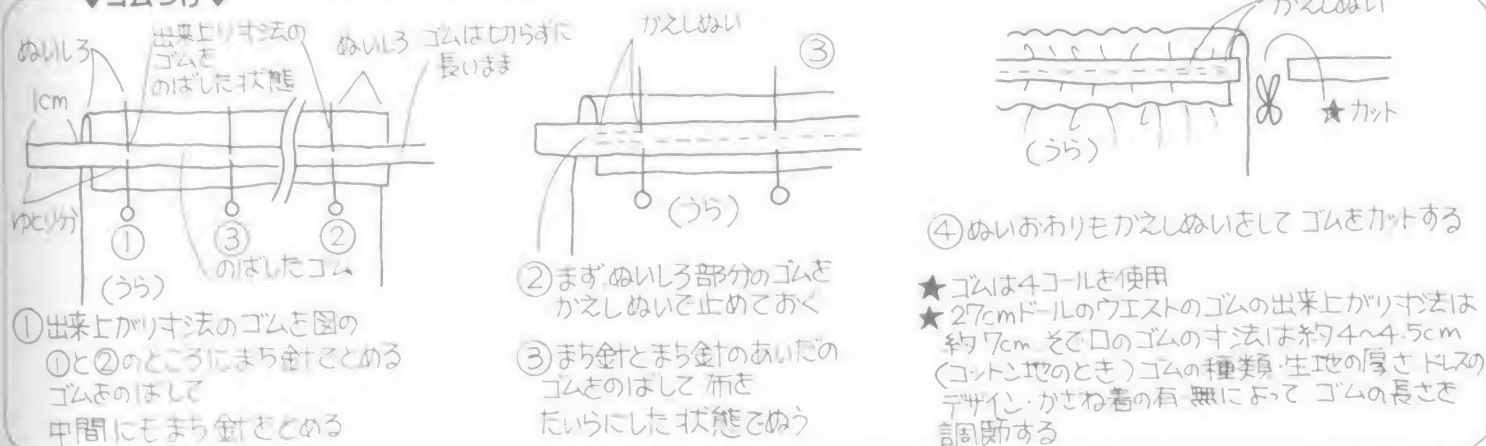 ▼ゴムつけ▼
ぬいしろ
出来上り寸法の
ゴムを
のばした状態
ぬいしろ
ゴムは切らずに
長いまま
1cm
ゆとり分
①
③
②
のばしたゴム
(うら)
①出来上がり寸法のゴムを図の
①と②のところにまち針でとめる
ゴムをのばして
中間にもまち針をとめる
かえしぬい
③
(うら)
②まず、ぬいしろ部分のゴムを
かえしぬいで止めておく
③まち針とまち針のあいだの
ゴムをのばして 布を
たいらにした状態でぬう
かえしぬい
★カット
(うら)
④ぬいおわりもかえしぬいをして ゴムをカットする
★ゴムは4コールを使用
★27cmドールのウエストのゴムの出来上がり寸法は
約7cm そで口のゴムの寸法は約4~4.5cm
(コットン地のとき)ゴムの種類・生地の厚さ ドレスの
デザイン・かさね着の有無によって ゴムの長さを
調節する